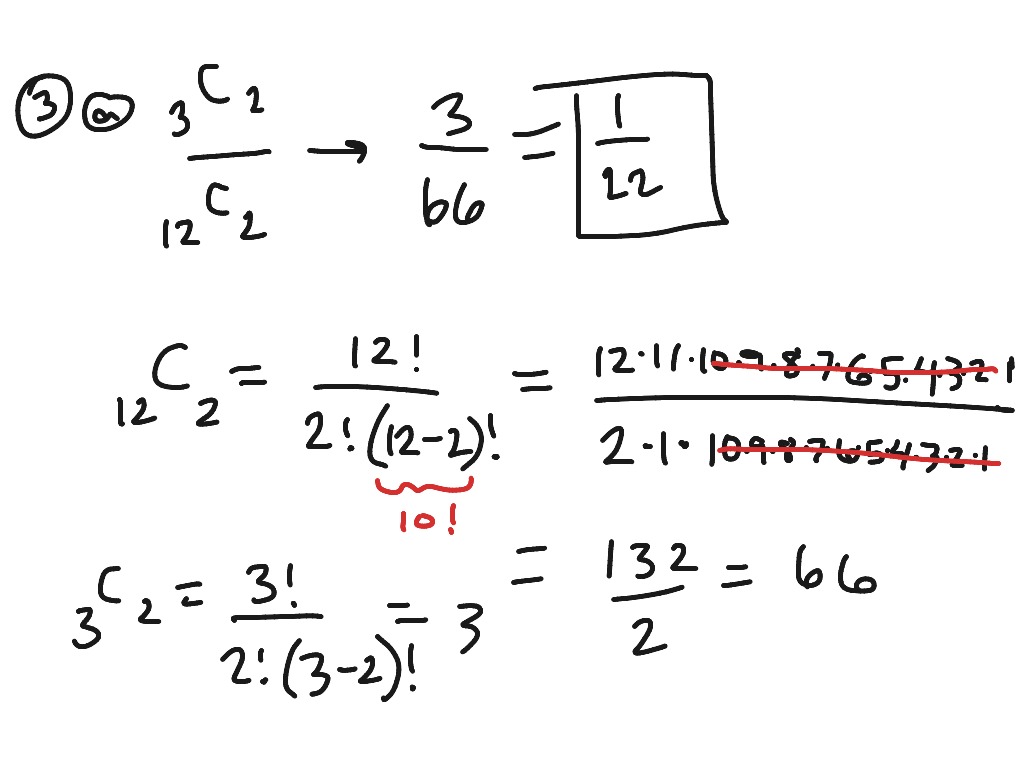 ③ ⓐ ₃C₂ / ₁₂C₂ → 3/66 = 1/22
₁₂C₂ = 12! / 2!(12-2)! = 12·11·10·9·8·7·6·5·4·3·2·1 / 2·1·10·9·8·7·6·5·4·3·2·1
10!
₃C₂ = 3! / 2!(3-2)! = 3
= 132/2 = 66